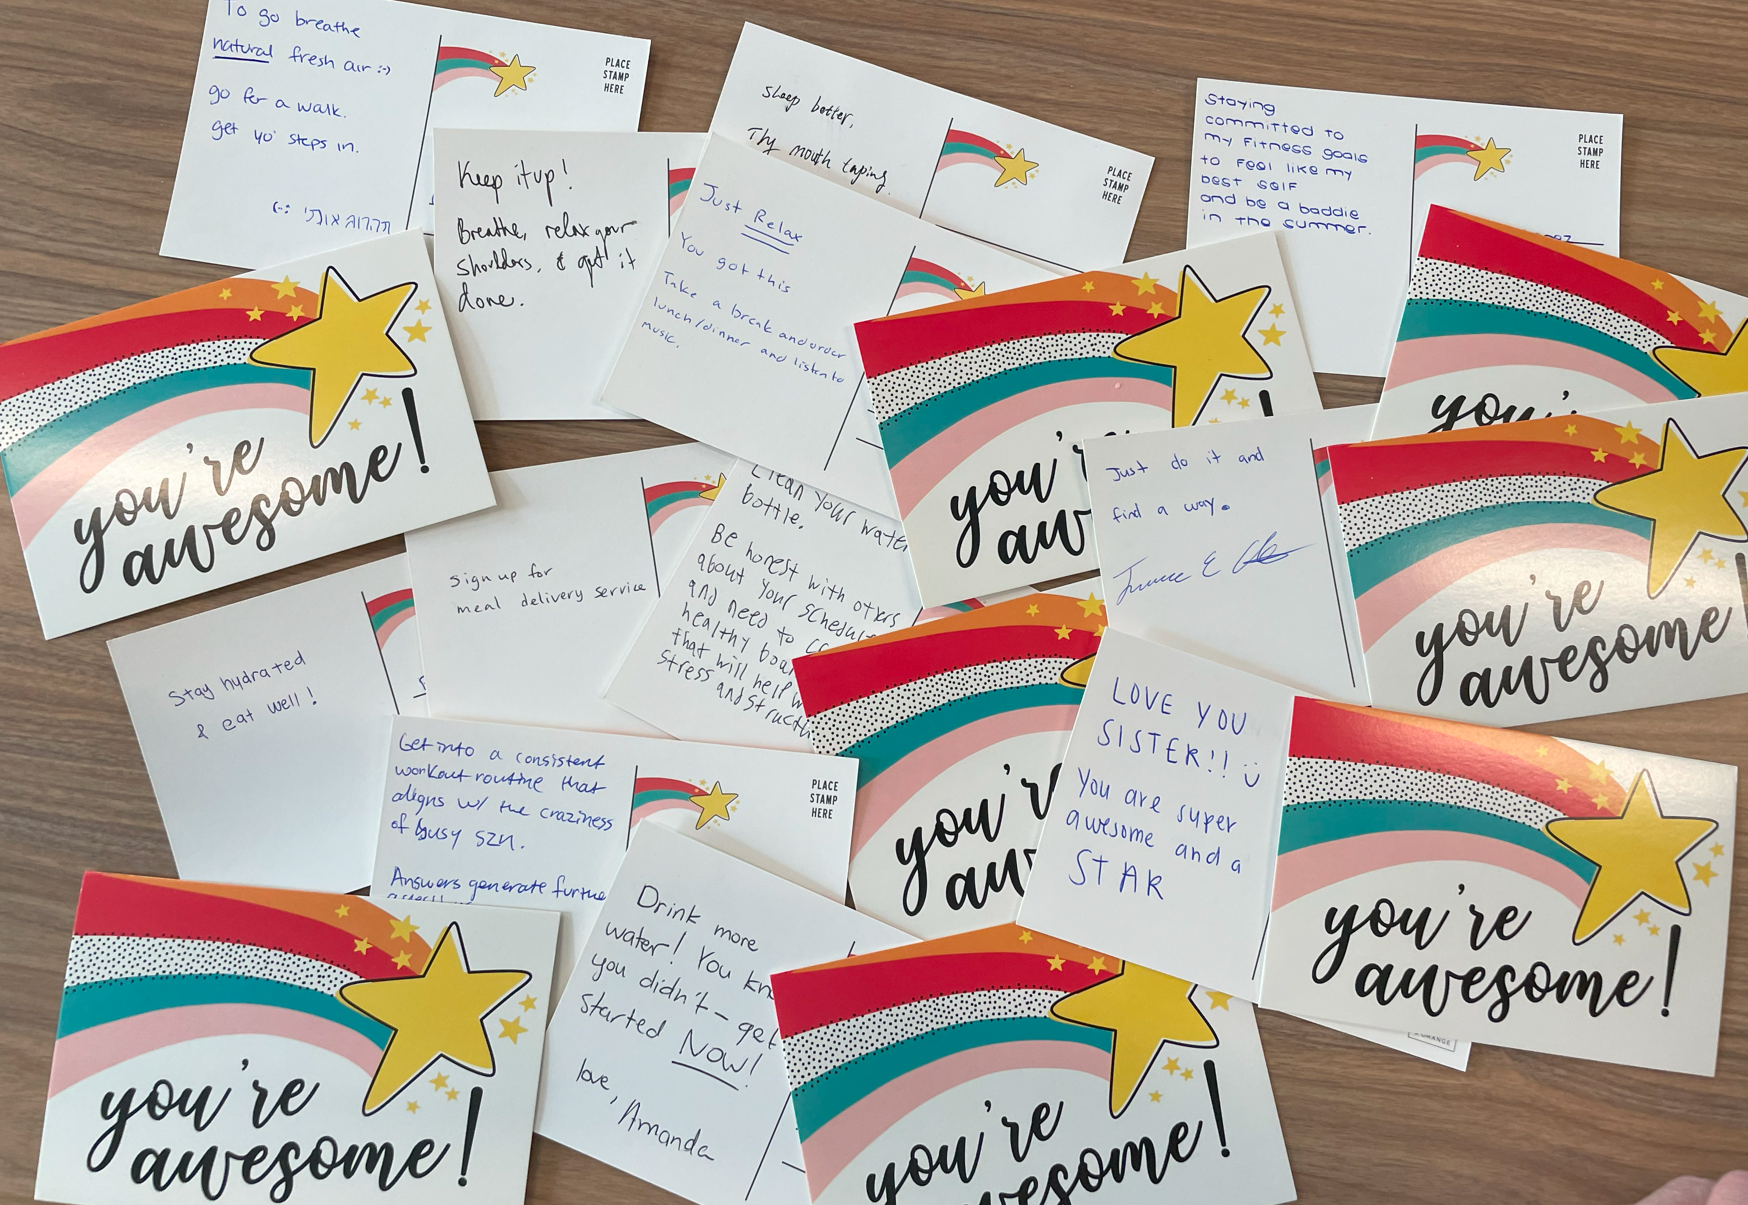 To go breathe
natural fresh air :-)
go for a walk.
get yo' steps in.
PLACE
STAMP
HERE
Keep it up!
Breathe, relax your
shoulders, & get it
done.
Sleep better,
Try mouth taping.
PLACE
STAMP
HERE
Just Relax
You got this
Take a break and order
lunch/dinner and listen to
music.
Staying
committed to
my fitness goals
to feel like my
best self
and be a baddie
in the summer.
PLACE
STAMP
HERE
you're
awesome!
you're
aw
Just do it and
find a way.
you're
you're
awesome
sign up for
meal delivery service
Clean your water
bottle.
Be honest with others
about your schedule
and need to
healthy
that will help
stress and
Stay hydrated
& eat well!
Get into a consistent
workout routine that
aligns w/ the craziness
of busy szn.
Answers generate further
PLACE
STAMP
HERE
you're
aw
LOVE YOU
SISTER!!
You are super
awesome and a
STAR
you're
awesome!
you're
awesome!
Drink more
water! You
you didn't - get
started NOW!
love,
Amanda
you're
awesome!